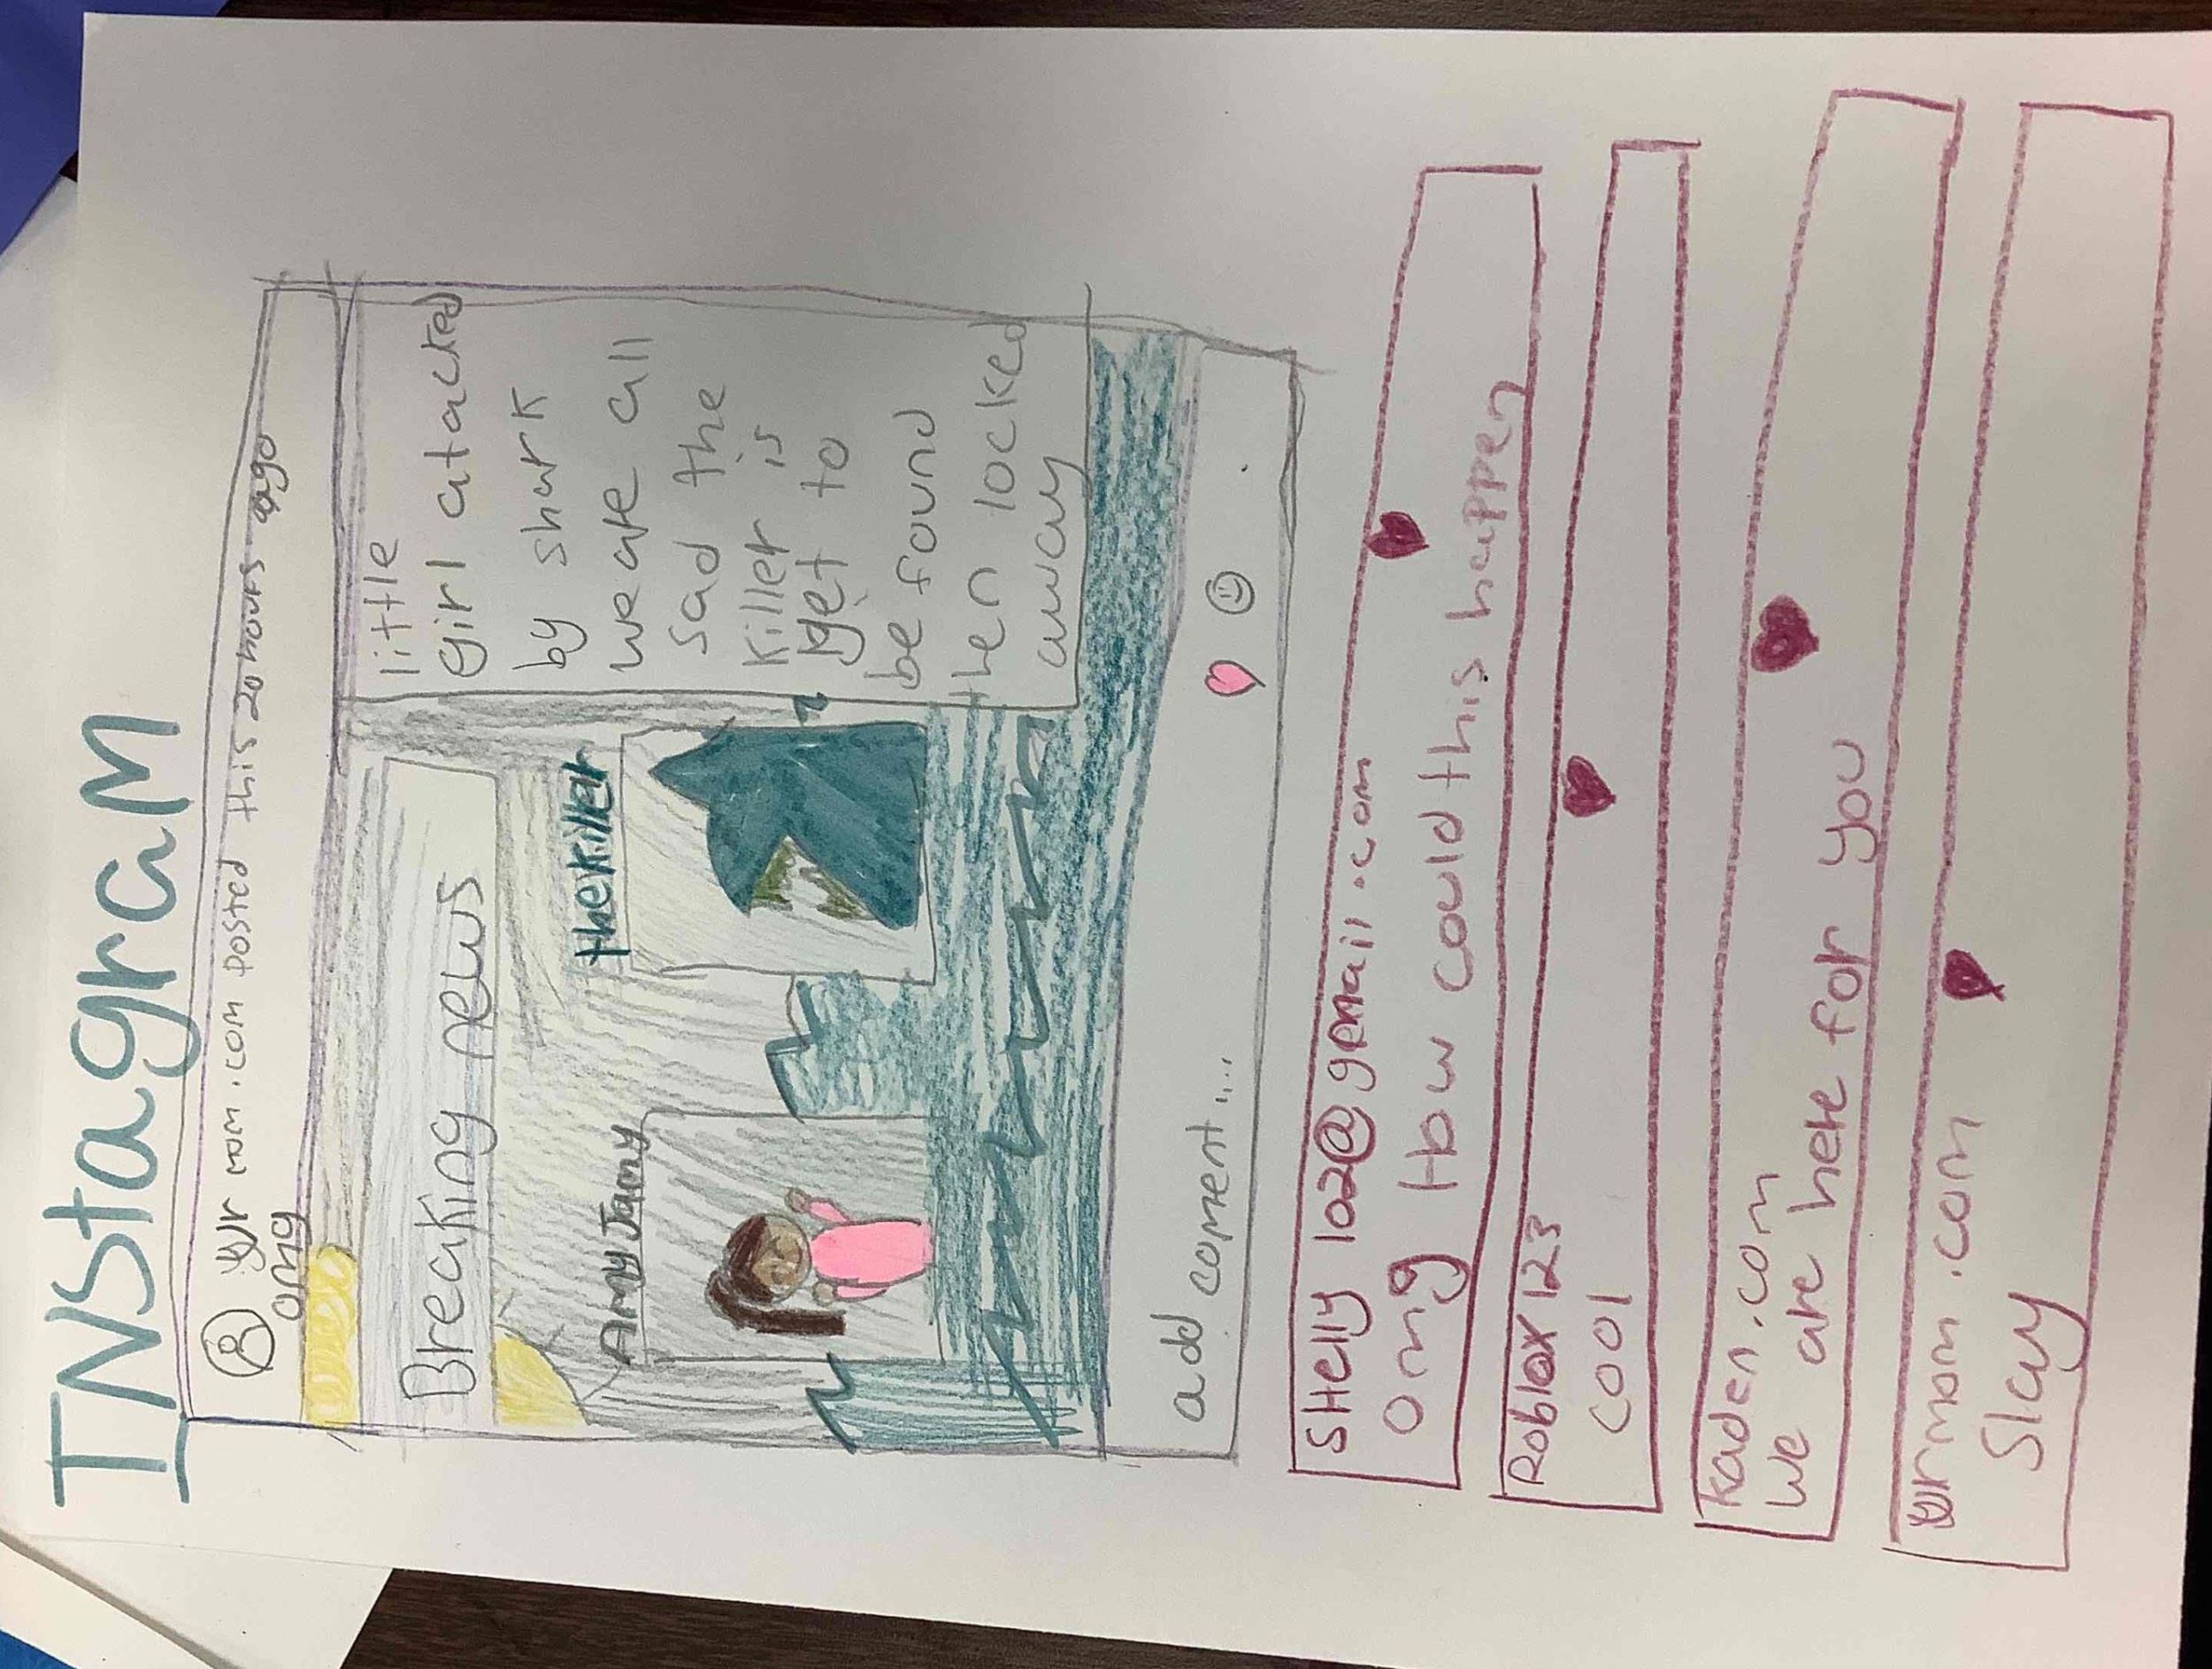 INStagraM
yr mom.com posted this 20 hours ago
omg
Breaking news
Amy Jany
the killer
little
girl atacked
by shark
we are all
sad the
killer is
yet to
be found
then locked
away
add coment....
SHelly 102@gemail.com
omg How could this happen
Roblox 123
cool
kaden.com
we are here for you
yrmom.com
Slay